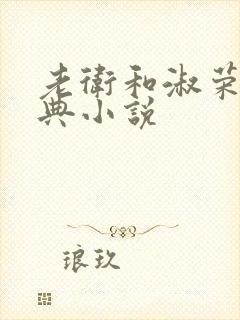 老衛和淑荣
典小說
琅玖